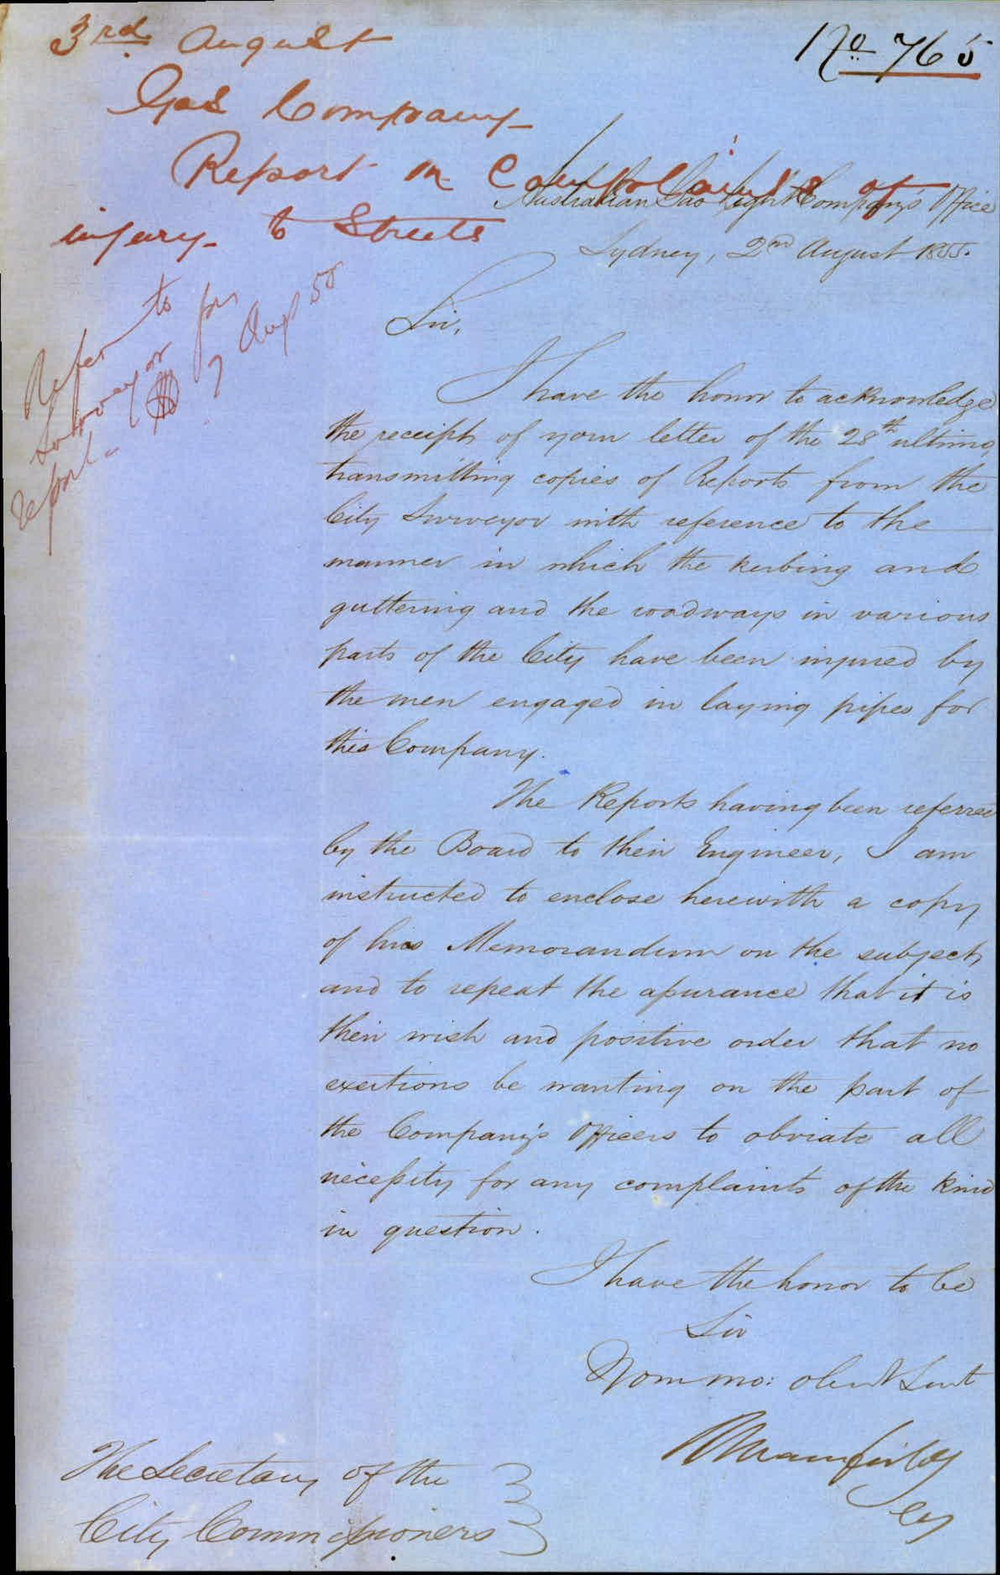 3rd August
No 765
Gas Company
Report on Complaints of
injury to Streets
Refer to
Surveyor for
report
7 Augt 55
Australian Gas Light Company's Office
Sydney, 2nd August 1855.
Sir,
I have the honor to acknowledge
the receipt of your letter of the 28th ultimo,
transmitting copies of Reports from the
City Surveyor with reference to the
manner in which the kerbing and
guttering and the roadways in various
parts of the City have been injured by
the men engaged in laying pipes for
this Company.
The Reports having been referred
by the Board to their Engineer, I am
instructed to enclose herewith a copy
of his Memorandum on the subject,
and to repeat the assurance that it is
their wish and positive order that no
exertions be wanting on the part of
the Company's Officers to obviate all
necessity for any complaints of the kind
in question.
I have the honor to be
Sir
Your mo: obedt Servt
The Secretary of the
City Commissioners